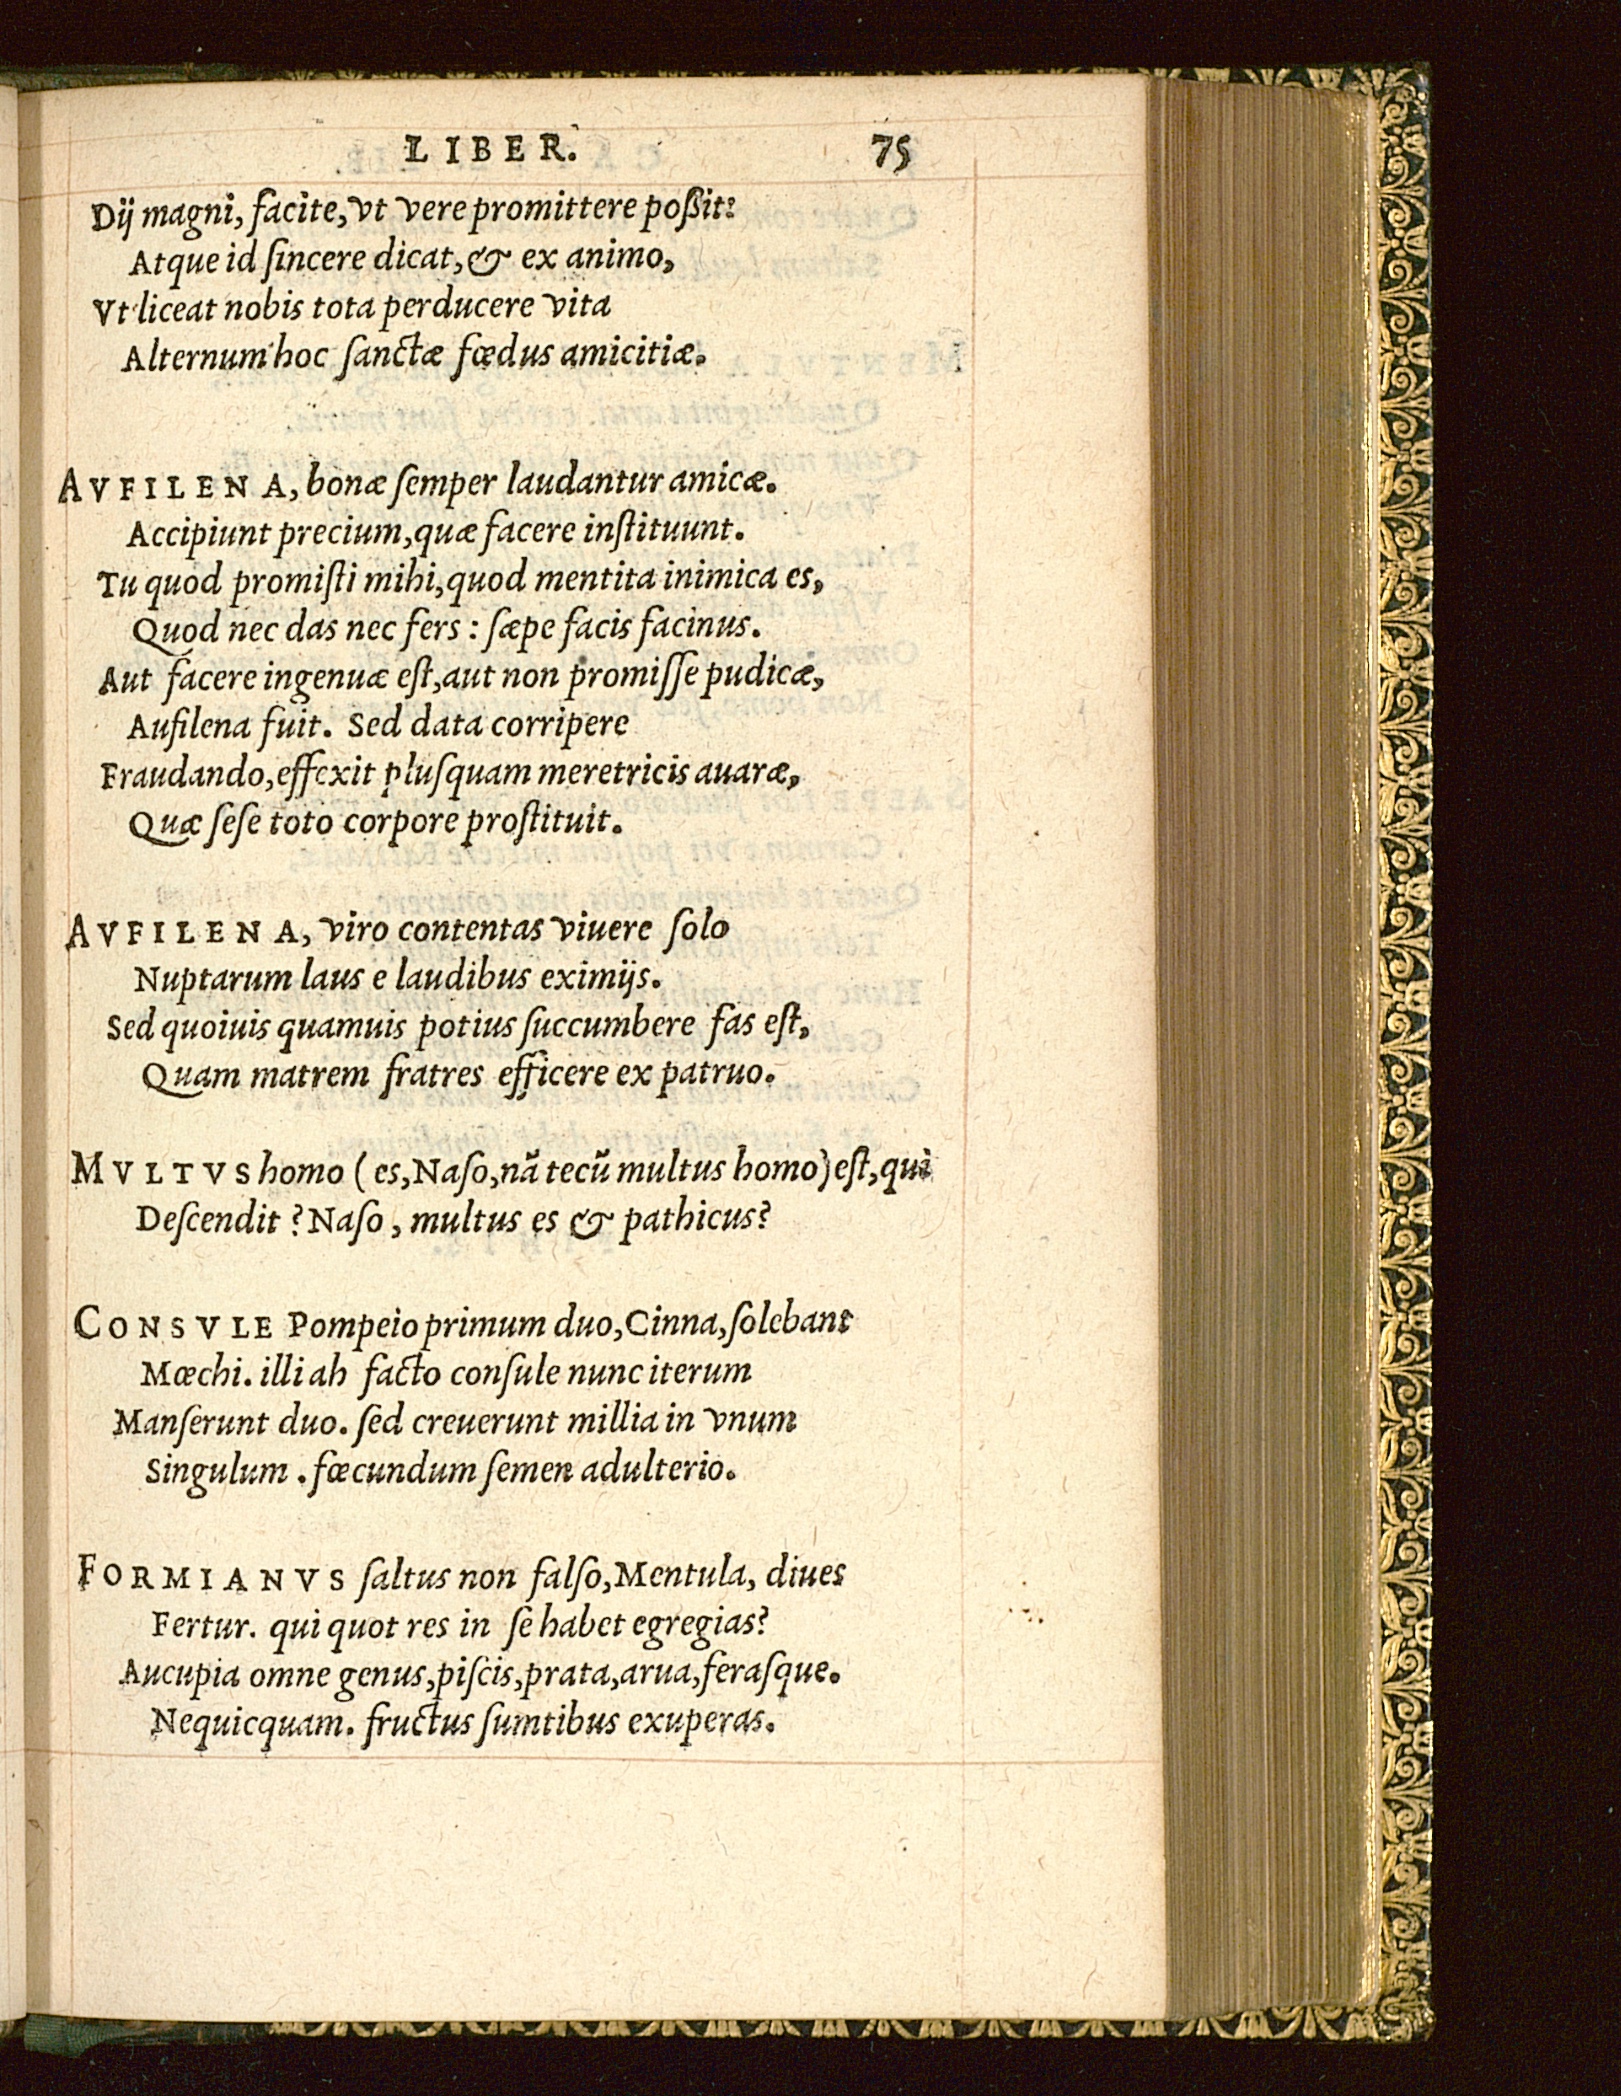 LIBER. 75
Dij magni, facite, vt vere promittere poßit:
Atque id ſincere dicat, & ex animo,
Vt liceat nobis tota perducere vita
Alternum hoc ſanctæ fœdus amicitiæ.
AVFILENA, bonæ ſemper laudantur amicæ.
Accipiunt precium, quæ facere inſtituunt.
Tu quod promiſti mihi, quod mentita inimica es,
Quod nec das nec fers : ſæpe facis facinus.
Aut facere ingenuæ eſt, aut non promiſſe pudicæ,
Aufilena fuit. Sed data corripere
Fraudando, effexit pluſquam meretricis auaræ,
Quæ ſeſe toto corpore proſtituit.
AVFILENA, viro contentas viuere ſolo
Nuptarum laus e laudibus eximijs.
Sed quoiuis quamuis potius ſuccumbere fas eſt,
Quam matrem fratres efficere ex patruo.
MVLTVS homo (es, Naſo, nã tecũ multus homo) eſt, qui
Deſcendit ? Naſo, multus es & pathicus?
CONSVLE Pompeio primum duo, Cinna, ſolebant
Mœchi. illi ah facto conſule nunc iterum
Manſerunt duo. ſed creuerunt millia in vnum
Singulum . fœcundum ſemen adulterio.
FORMIANVS ſaltus non falſo, Mentula, diues
Fertur. qui quot res in ſe habet egregias?
Aucupia omne genus, piſcis, prata, arua, feraſque.
Nequicquam. fructus ſumtibus exuperas.